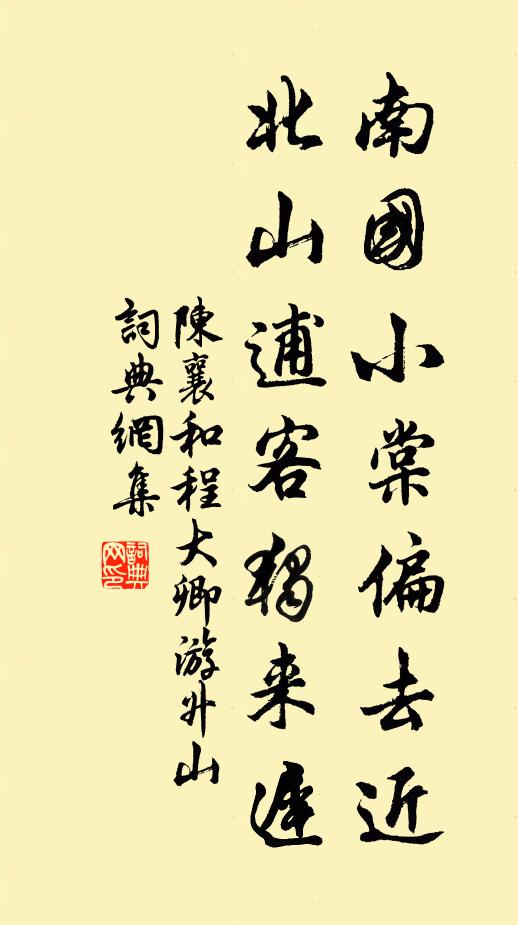 南國小棠偏去近
北山逋客獨来遲
陳襄和程大卿游升山
詞典網集
詞典网印